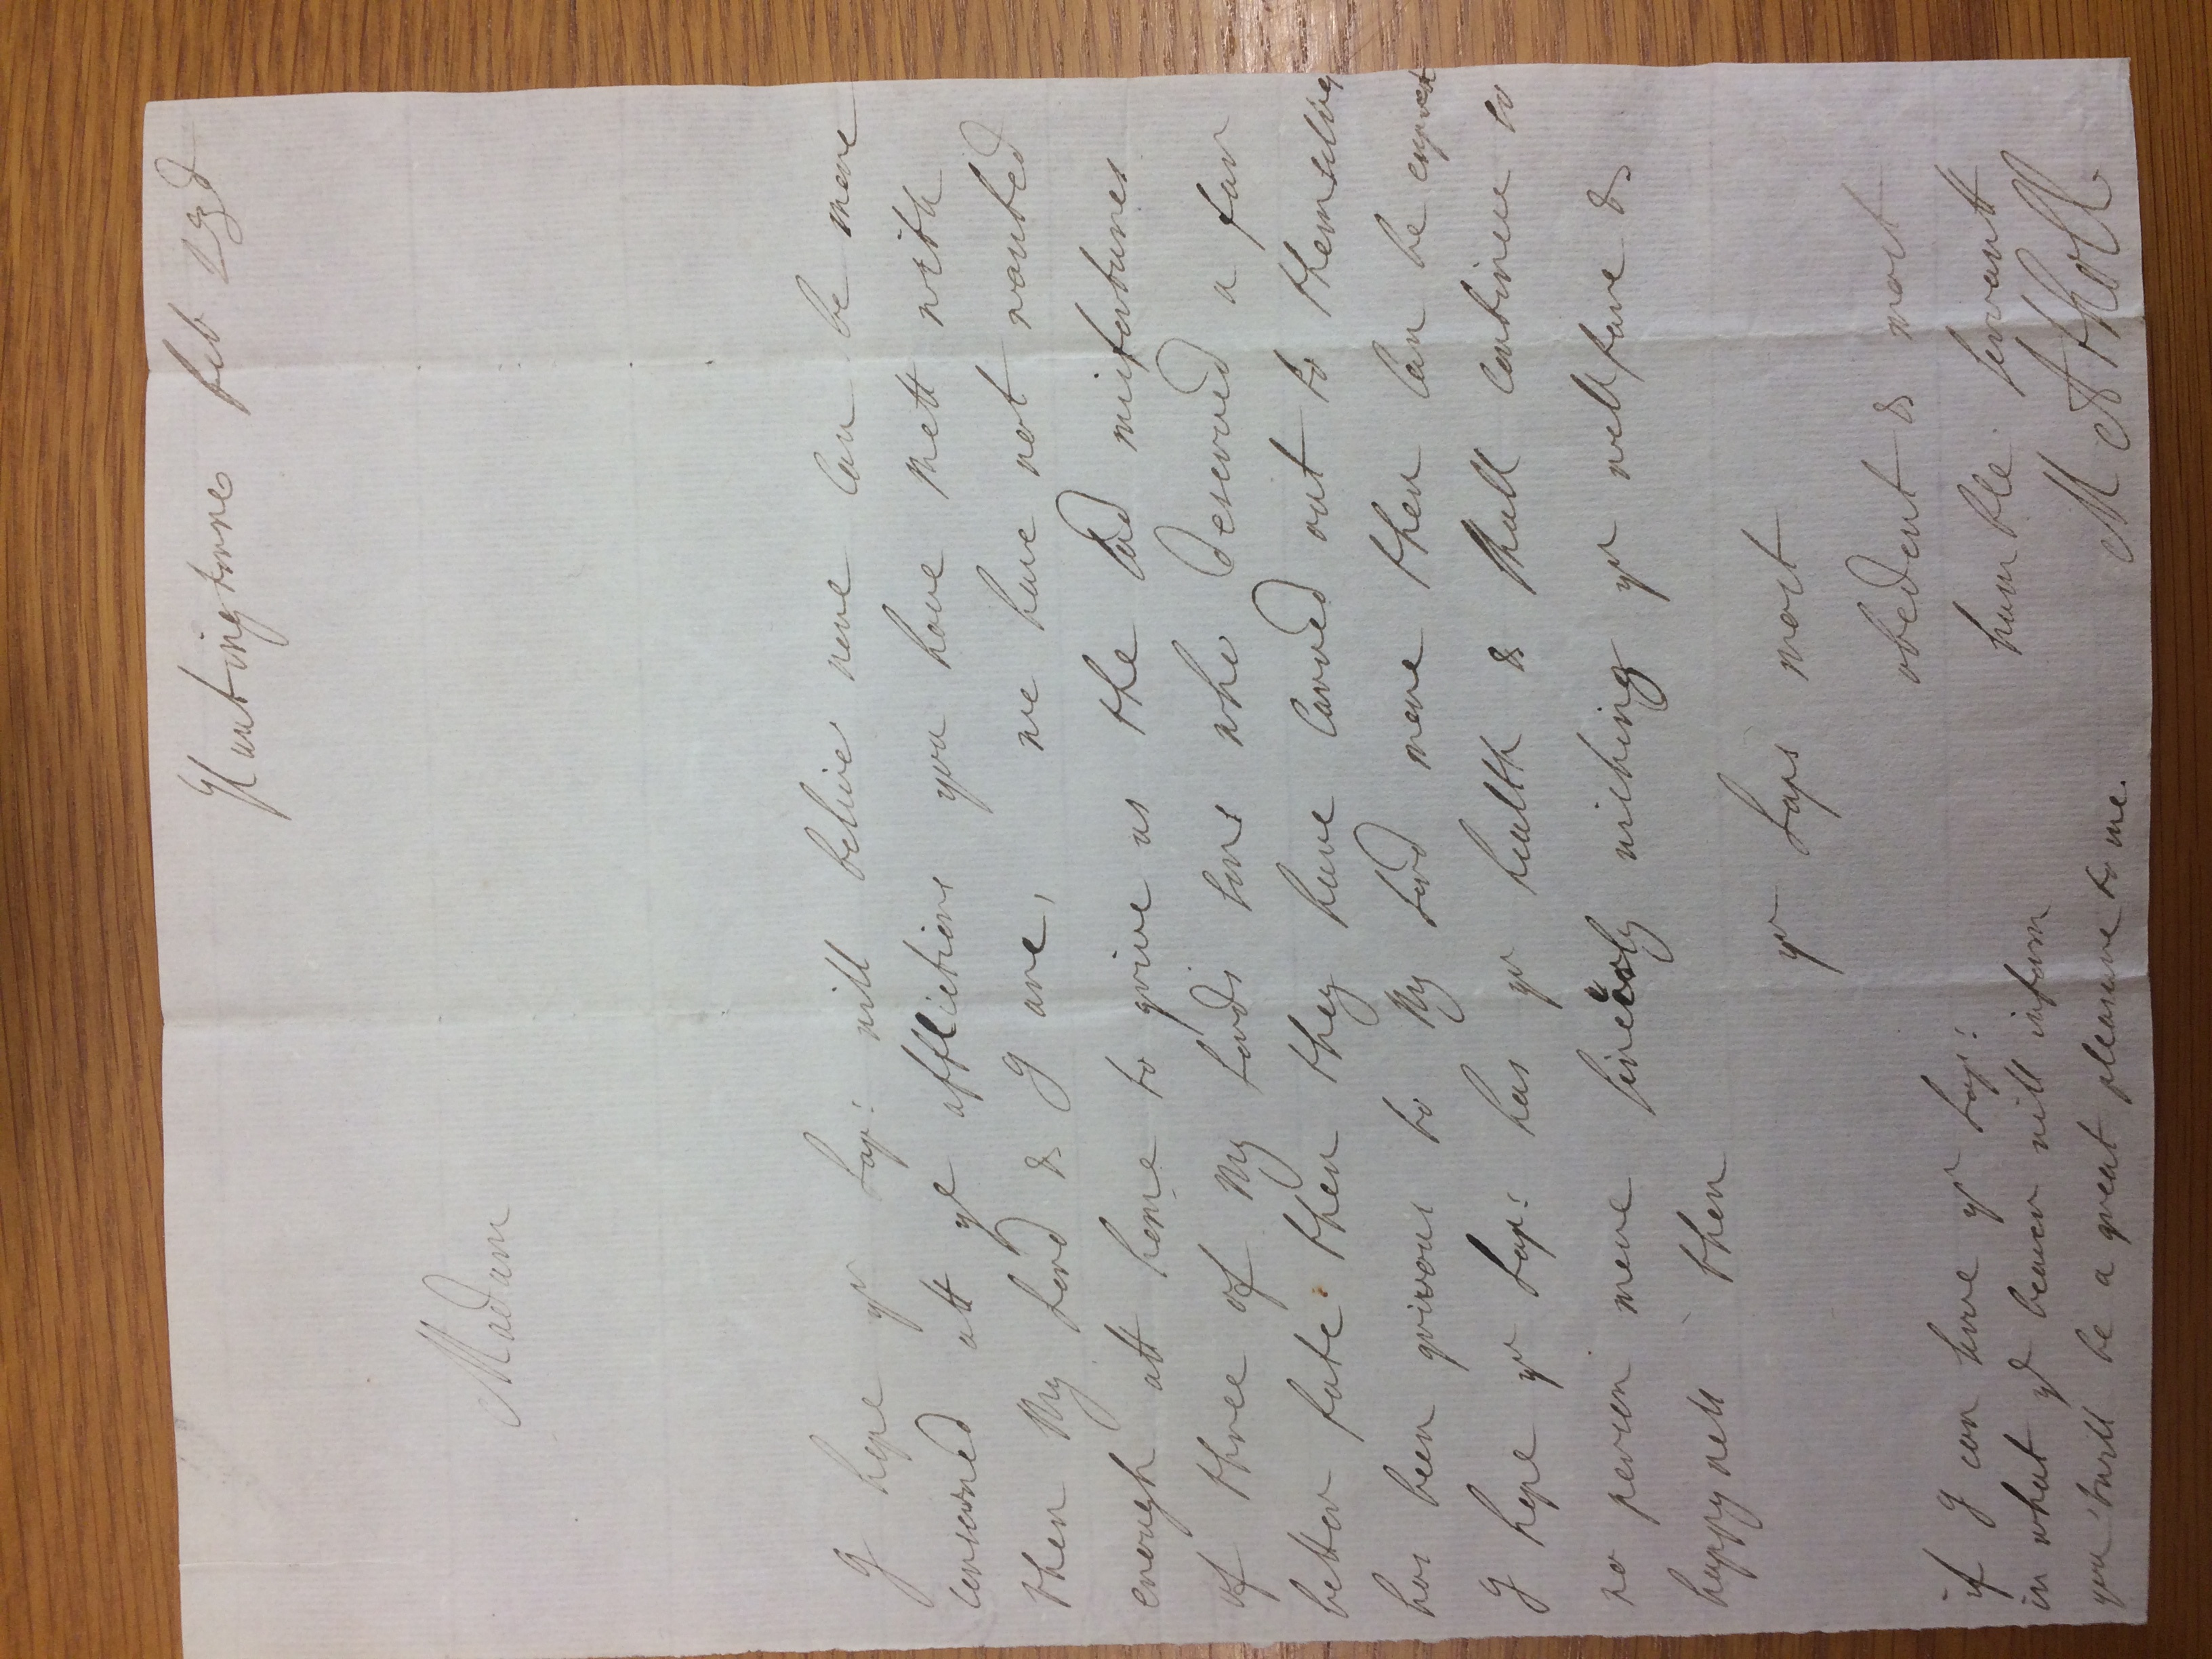 Huntingtowne feb 23d
Madam
I hope yr Lap: will belive none can be more
conserned att ye afflictions you have mett with
then My Lord & I are, we have not wanted
enough att home to grive us the sad misfortunes
of three of My Lords sons who deserved a far
better fate then they have carved out to themselves
has been grivous to My Lord more then can be exprest
I hope yr Lap: has yr health & shall continue so
no person more sincerly wishing yr wellfare &
happyness then
yr Laps most
obedent & most
humble servantt
M Atholl
if I can serve yr Lap:
in what ye bearer will inform
you twill be a great pleasure to me.